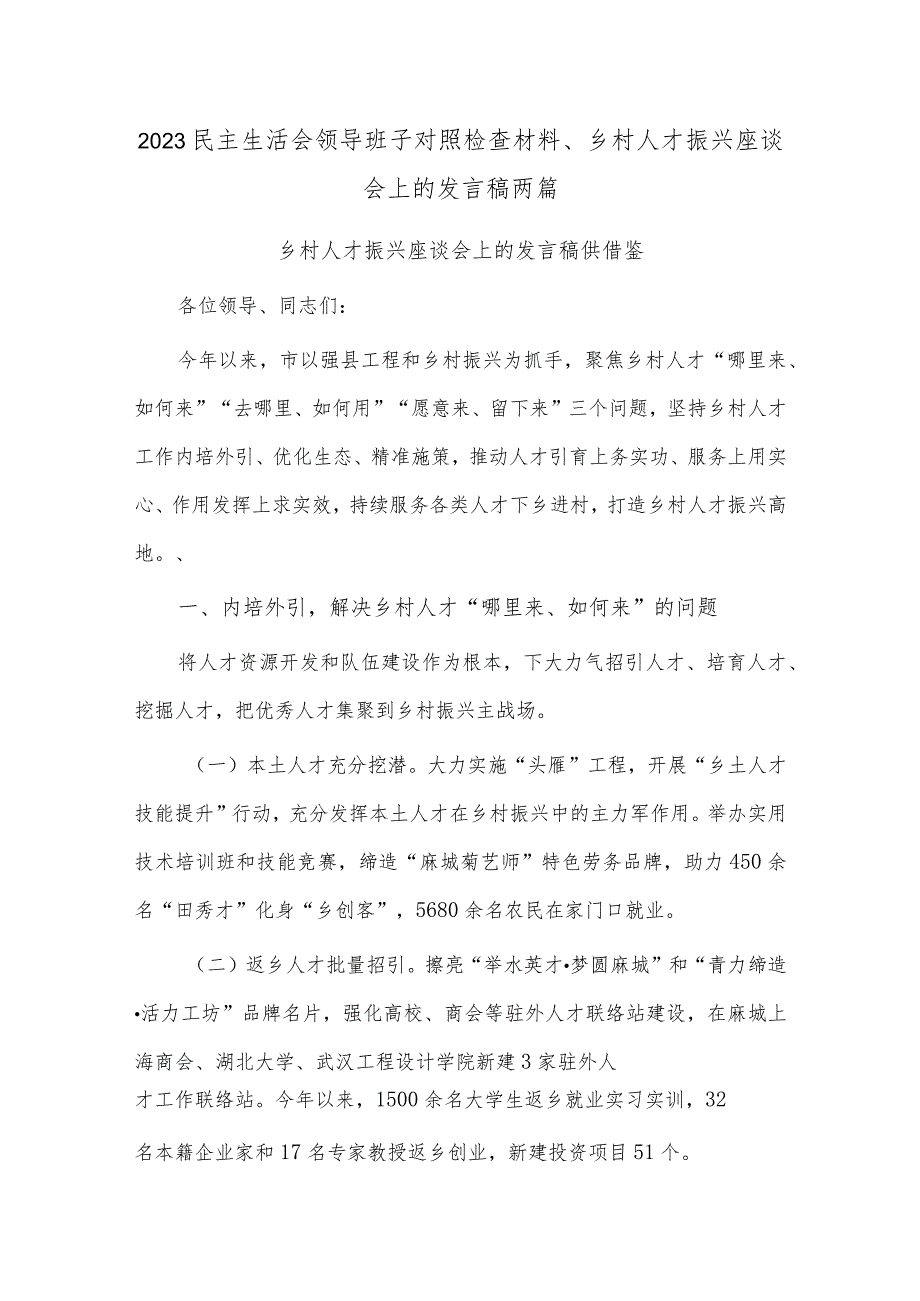 2023民主生活会领导班子对照检查材料、乡村人才振兴座谈
会上的发言稿两篇
乡村人才振兴座谈会上的发言稿供借鉴
各位领导、同志们：
今年以来，市以强县工程和乡村振兴为抓手，聚焦乡村人才“哪里来、
如何来”“去哪里、如何用”“愿意来、留下来”三个问题，坚持乡村人才
工作内培外引、优化生态、精准施策，推动人才引育上务实功、服务上用实
心、作用发挥上求实效，持续服务各类人才下乡进村，打造乡村人才振兴高
地。、
一、内培外引，解决乡村人才“哪里来、如何来”的问题
将人才资源开发和队伍建设作为根本，下大力气招引人才、培育人才、
挖掘人才，把优秀人才集聚到乡村振兴主战场。
（一）本土人才充分挖潜。大力实施“头雁”工程，开展“乡土人才
技能提升”行动，充分发挥本土人才在乡村振兴中的主力军作用。举办实用
技术培训班和技能竞赛，缔造“麻城菊艺师”特色劳务品牌，助力450余
名“田秀才”化身“乡创客”，5680余名农民在家门口就业。
（二）返乡人才批量招引。擦亮“举水英才•梦圆麻城”和“青力缔造
•活力工坊”品牌名片，强化高校、商会等驻外人才联络站建设，在麻城上
海商会、湖北大学、武汉工程设计学院新建3家驻外人
才工作联络站。今年以来，1500余名大学生返乡就业实习实训，32
名本籍企业家和17名专家教授返乡创业，新建投资项目51个。